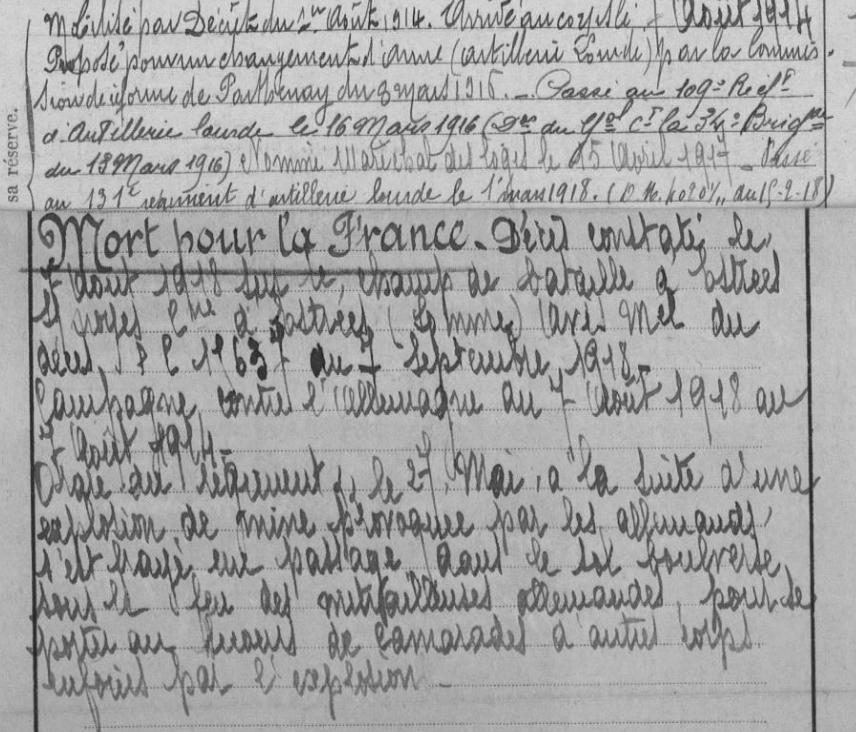 Mobilisé par Décret du 1er Août 1914. Arrivé au corps le 7 Août 1914
Proposé pour un changement d'arme (artillerie Lourde) par la Commis-
sion de réforme de Parthenay du 8 mars 1916. _ Passé au 109e Régt
d'Artillerie lourde le 16 Mars 1916 (Don du Gal Ct la 34e Brigde
du 13 Mars 1916) Nommé Maréchal des logis le 15 Avril 1917 _ Passé
au 131e régiment d'artillerie lourde le 1er mars 1918. (D.M. 4020 % du 15-2-18)
sa réserve.
Mort pour la France. Décès constaté le
7 août 1918 sur le champ de bataille à Estrées
Cne d'Estrées (Somme) (avis Mel du
décès du 7 Septembre 1918_
Campagne contre l'Allemagne du 7 Août 1918 au
7 Août 1914_
du régiment, le 27 Mai, à la suite d'une
explosion de mine provoquée par les allemands
s'est frayé un passage dans le sol boulversé
sous le feu des mitrailleuses allemandes, pour se
porter au secours de camarades d'autres corps
enfouis par l'explosion _